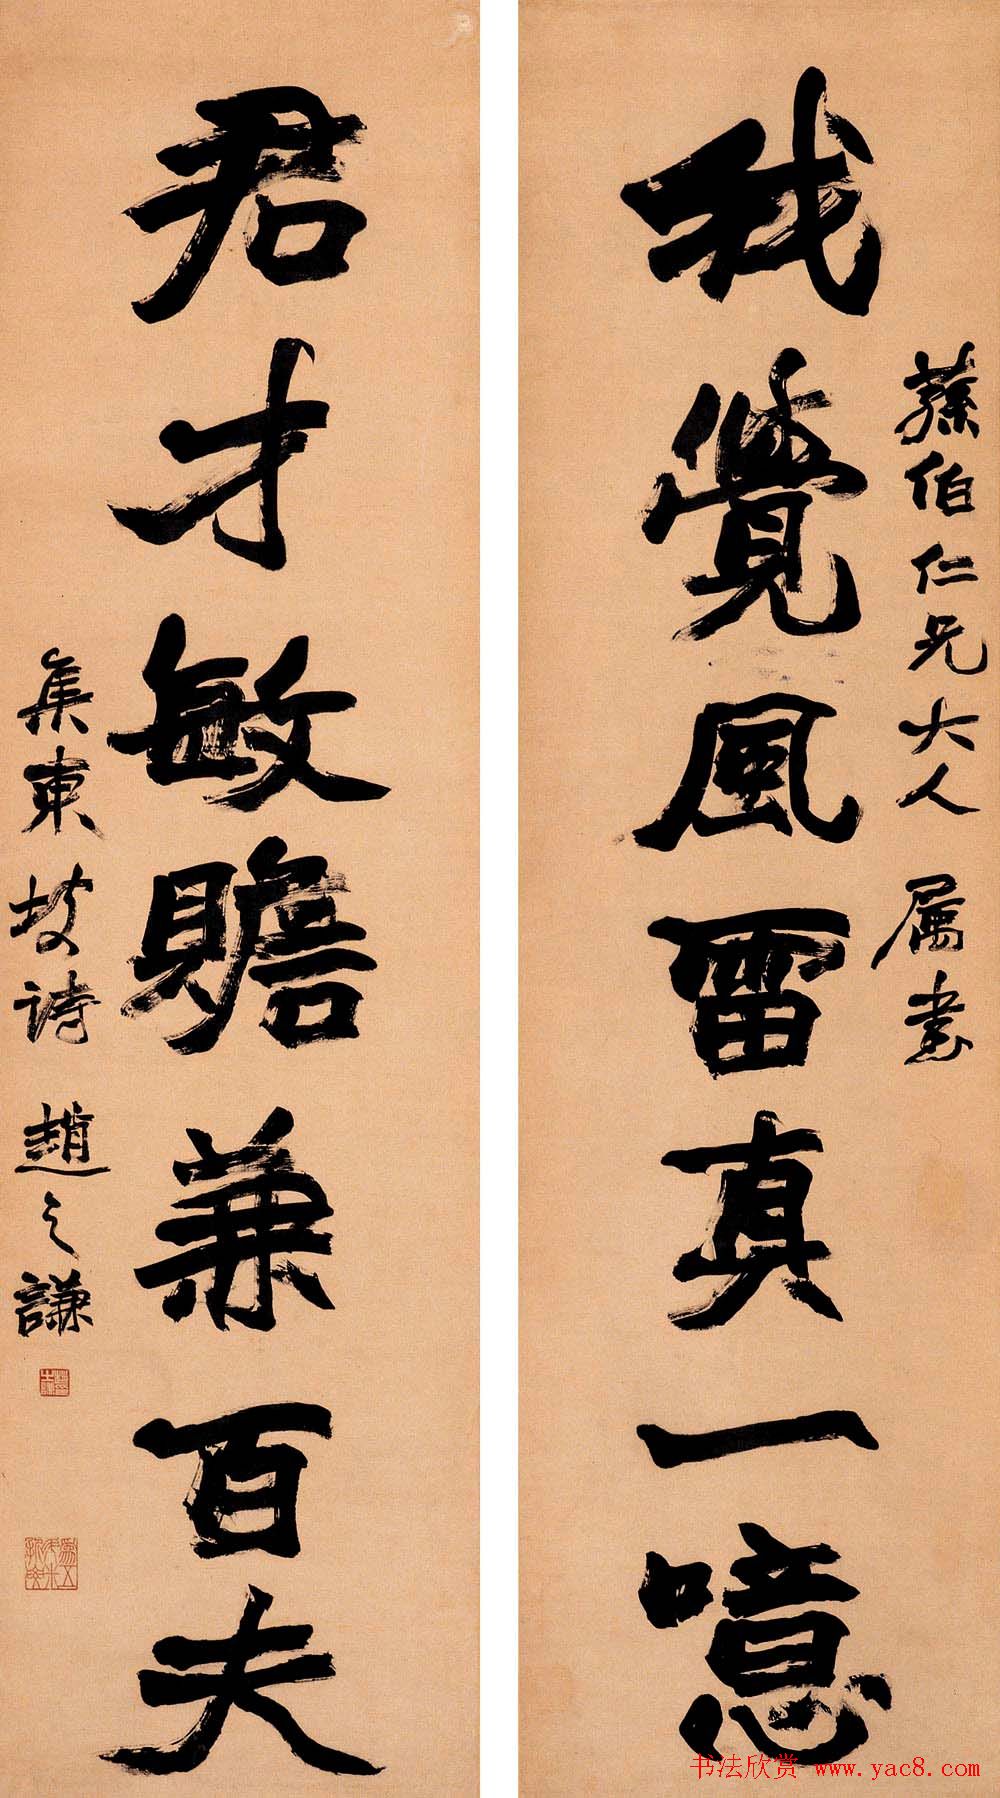 蓀伯仁兄大人 属書
我覺風雷真一噫
君才敏贍兼百夫
集東坡詩 趙之謙
书法欣赏 www.yac8.com